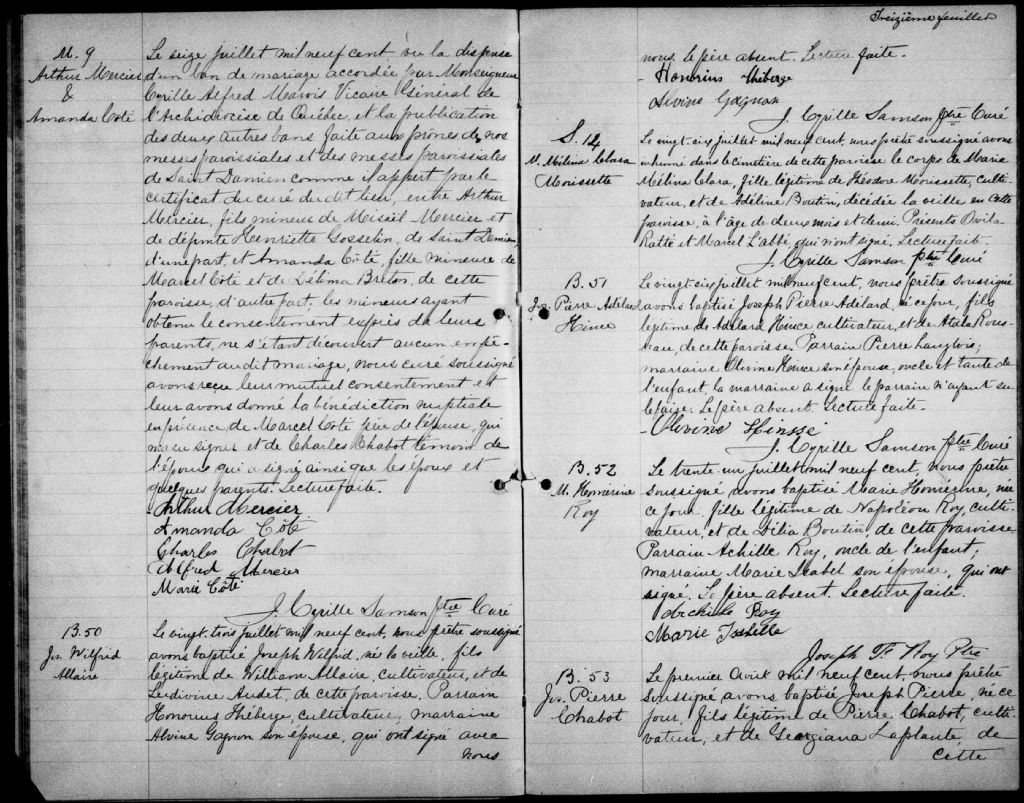 M. 9
Arthur Mercier
&
Amanda Coté
Le seize juillet mil neuf cent vu la dispense
d'un ban de mariage accordée par Monseigneur
Cyrille Alfred Marois Vicaire Général de
l'Archidiocèse de Québec, et la publication
des deux autres bans faite aux prônes de nos
messes paroissiales et des messes paroissiales
de Saint Damien comme il appert par le
certificat du curé du dit lieu, entre Arthur
Mercier, fils mineur de Misaël Mercier et
de défunte Henriette Gosselin, de Saint Damien
d'une part, et Amanda Côté, fille mineure de
Marcel Coté et de Délima Breton, de cette
paroisse, d'autre part, les mineurs ayant
obtenu le consentement exprès de leurs
parents, ne s'étant découvert aucun empê-
chement au dit mariage, nous curé soussigné
avons reçu leur mutuel consentement et
leur avons donné la bénédiction nuptiale
en présence de Marcel Coté père de l'épouse, qui
n'a su signer et de Charles Chabot témoin de
l'époux qui a signé ainsi que les époux et
quelques parents. Lecture faite.
Arthur Mercier
Amanda Côté
Charles Chabot
Alfred Mercier
Marie Côté
J. Cyrille Samson Ptre Curé
B. 50
Jos. Wilfrid
Allaire
Le vingt-trois juillet mil neuf cent, nous prêtre soussigné
avons baptisé Joseph Wilfrid, né la veille, fils
légitime de William Allaire, cultivateur, et de
Ludivine Audet, de cette paroisse. Parrain
Honorius Théberge, cultivateur, marraine
Alvine Gagnon son épouse, qui ont signé avec
nous
Treizième feuillet
nous, le père absent. Lecture faite.
Honorius théberge
Alvine Gagnon
J. Cyrille Samson Ptre Curé
S. 14
M. Mélina Clara
Morissette
Le vingt-six juillet mil neuf cent, nous prêtre soussigné avons
inhumé dans le cimetière de cette paroisse le corps de Marie
Mélina Clara, fille légitime de Théodore Morissette, culti-
vateur, et de Adéline Boutin, décédée la veille en cette
paroisse, à l'âge de deux mois et demi. Présents Ovila
Ratté et Marcel L'abbé, qui n'ont signé. Lecture faite.
J. Cyrille Samson Ptre Curé
B. 51
Jos. Pierre Adélard
Hince
Le vingt-six juillet mil neuf cent, nous prêtre soussigné
avons baptisé Joseph Pierre Adélard, né ce jour, fils
légitime de Adélard Hince cultivateur, et de Atala Rous-
seau, de cette paroisse. Parrain Pierre Langlois;
marraine Olivine Hince son épouse, oncle et tante de
l'enfant, la marraine a signé le parrain n'ayant su
le faire. Le père absent. Lecture faite.
Olivine Hinsse
J. Cyrille Samson Ptre Curé
B. 52
M. Homérine
Roy
Le trente-un juillet mil neuf cent, nous prêtre
soussigné avons baptisé Marie Homérine, née
ce jour, fille légitime de Napoléon Roy, culti-
vateur, et de Délia Boutin, de cette paroisse.
Parrain Achille Roy, oncle de l'enfant;
marraine Marie Isabel son épouse, qui ont
signé. Le père absent. Lecture faite.
Archile Roy
Marie Isabelle
Joseph Th. Roy Ptre
B. 53
Jos. Pierre
Chabot
Le premier Août mil neuf cent, nous prêtre
soussigné avons baptisé Joseph Pierre, né ce
jour, fils légitime de Pierre Chabot, culti-
vateur, et de Georgiana Laplante de
cette